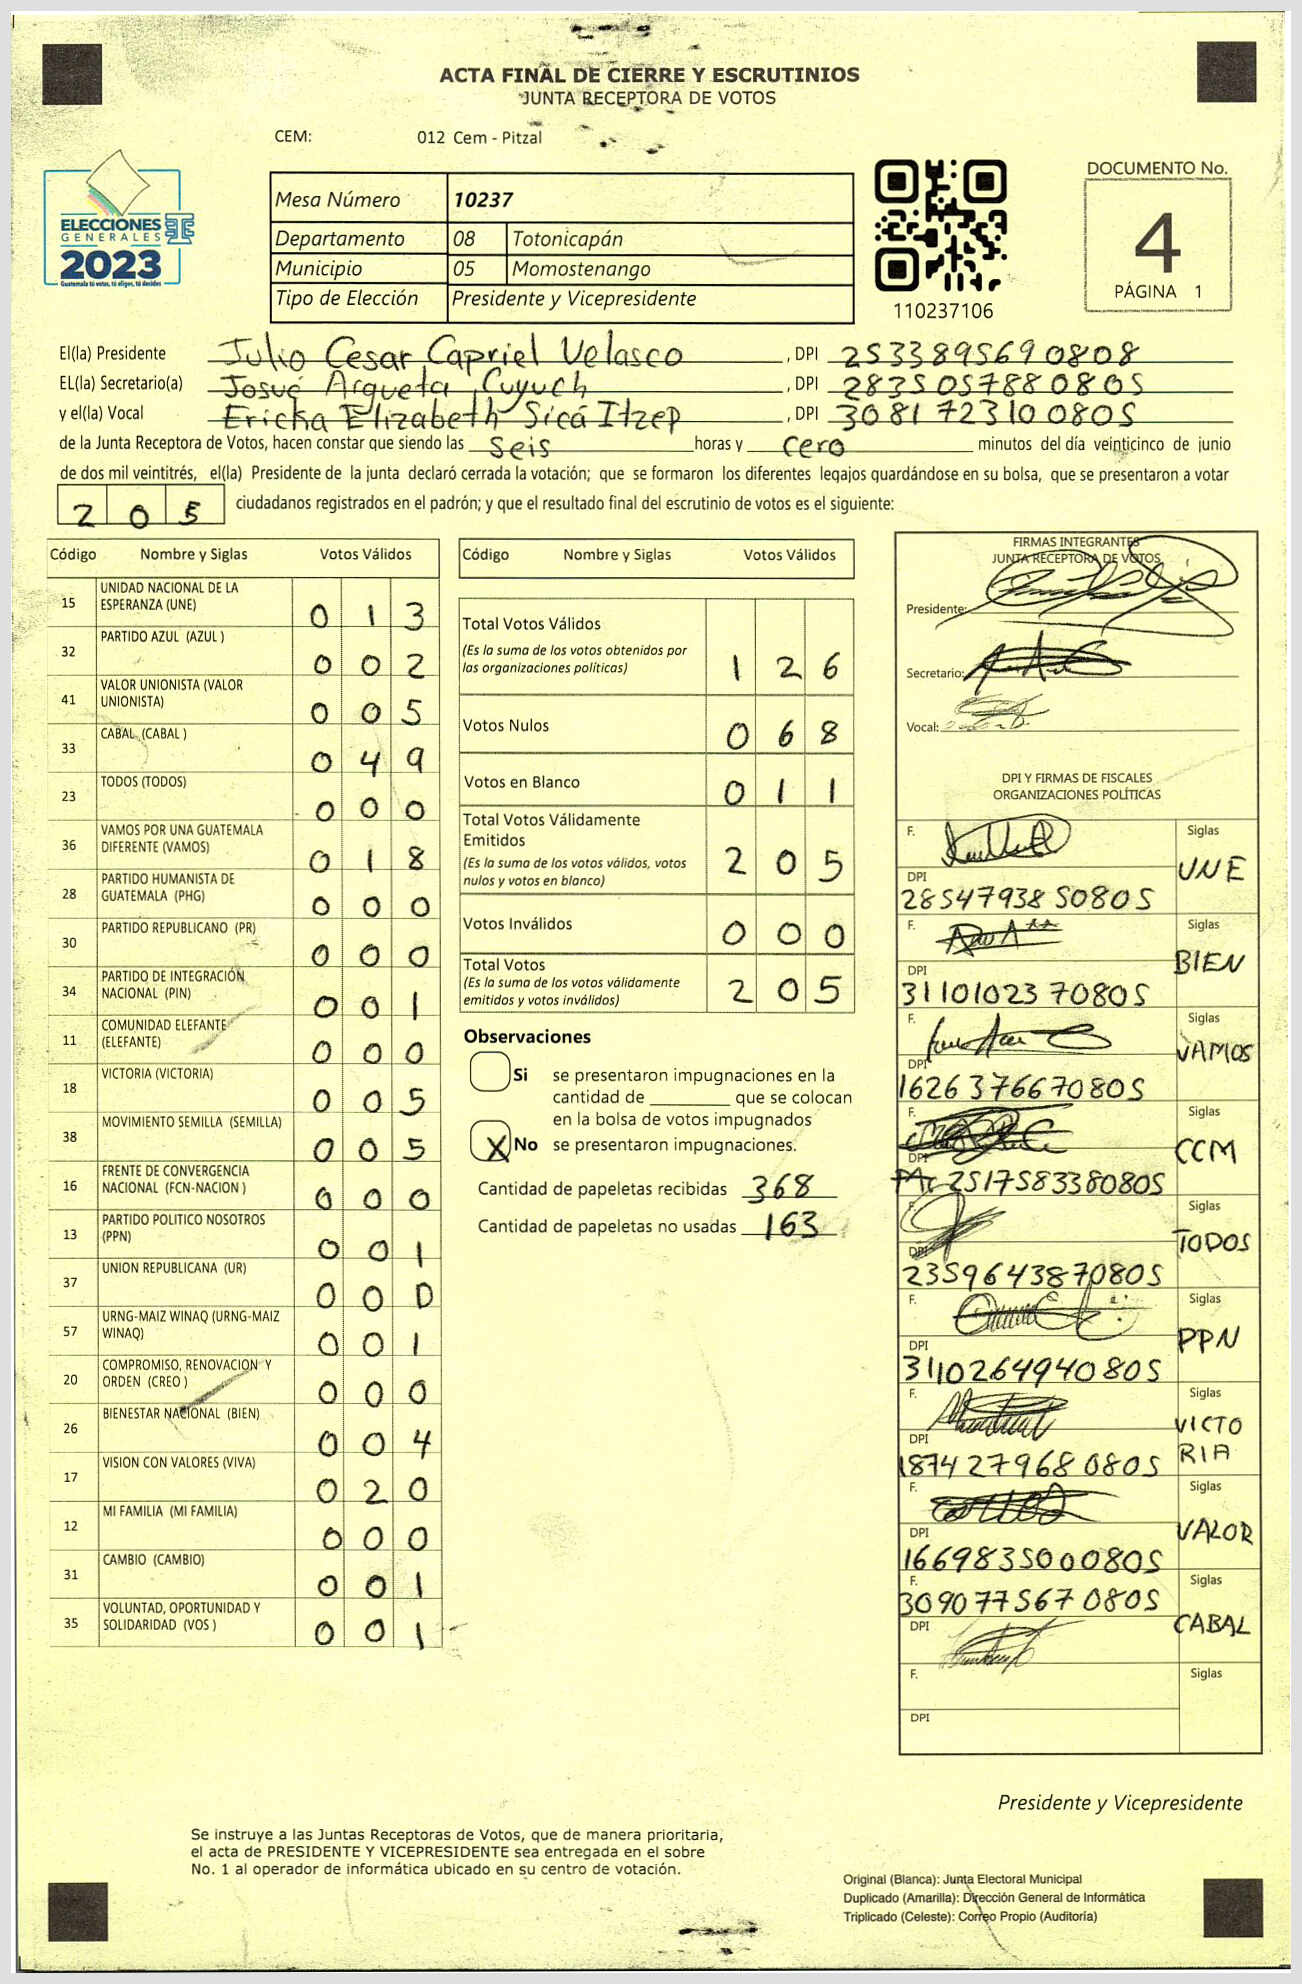 ACTA FINAL DE CIERRE Y ESCRUTINIOS
JUNTA RECEPTORA DE VOTOS
CEM: 012 Cem - Pitzal
ELECCIONES
GENERALES
2023
Guatemala tú votas, tú eliges, tú decides
Mesa Número 10237
Departamento 08 Totonicapán
Municipio 05 Momostenango
Tipo de Elección Presidente y Vicepresidente
110237106
DOCUMENTO No.
4
PÁGINA 1
El(la) Presidente Julio Cesar Capriel Velasco, DPI 2533895690808
EL(la) Secretario(a) Josué Argueta Cuyuch, DPI 2835057880805
y el(la) Vocal Ericka Elizabeth Sicá Itzep, DPI 3081723100805
de la Junta Receptora de Votos, hacen constar que siendo las seis horas y cero minutos del día veinticinco de junio
de dos mil veintitrés, el(la) Presidente de la junta declaró cerrada la votación; que se formaron los diferentes legajos guardándose en su bolsa, que se presentaron a votar
205 ciudadanos registrados en el padrón; y que el resultado final del escrutinio de votos es el siguiente:
Código Nombre y Siglas Votos Válidos
15 UNIDAD NACIONAL DE LA
ESPERANZA (UNE) 0 1 3
32 PARTIDO AZUL (AZUL ) 0 0 2
41 VALOR UNIONISTA (VALOR
UNIONISTA) 0 0 5
33 CABAL (CABAL ) 0 4 9
23 TODOS (TODOS) 0 0 0
36 VAMOS POR UNA GUATEMALA
DIFERENTE (VAMOS) 0 1 8
28 PARTIDO HUMANISTA DE
GUATEMALA (PHG) 0 0 0
30 PARTIDO REPUBLICANO (PR) 0 0 0
34 PARTIDO DE INTEGRACIÓN
NACIONAL (PIN) 0 0 1
11 COMUNIDAD ELEFANTE
(ELEFANTE) 0 0 0
18 VICTORIA (VICTORIA) 0 0 5
38 MOVIMIENTO SEMILLA (SEMILLA) 0 0 5
16 FRENTE DE CONVERGENCIA
NACIONAL (FCN-NACION ) 0 0 0
13 PARTIDO POLITICO NOSOTROS
(PPN) 0 0 1
37 UNION REPUBLICANA (UR) 0 0 0
57 URNG-MAIZ WINAQ (URNG-MAIZ
WINAQ) 0 0 1
20 COMPROMISO, RENOVACION Y
ORDEN (CREO ) 0 0 0
26 BIENESTAR NACIONAL (BIEN) 0 0 4
17 VISION CON VALORES (VIVA) 0 2 0
12 MI FAMILIA (MI FAMILIA) 0 0 0
31 CAMBIO (CAMBIO) 0 0 1
35 VOLUNTAD, OPORTUNIDAD Y
SOLIDARIDAD (VOS ) 0 0 1
Código Nombre y Siglas Votos Válidos
Total Votos Válidos
(Es la suma de los votos obtenidos por
las organizaciones políticas) 1 2 6
Votos Nulos 0 6 8
Votos en Blanco 0 1 1
Total Votos Válidamente
Emitidos
(Es la suma de los votos válidos, votos
nulos y votos en blanco) 2 0 5
Votos Inválidos 0 0 0
Total Votos
(Es la suma de los votos válidamente
emitidos y votos inválidos) 2 0 5
Observaciones
Si se presentaron impugnaciones en la
cantidad de ________ que se colocan
en la bolsa de votos impugnados
X No se presentaron impugnaciones.
Cantidad de papeletas recibidas 368
Cantidad de papeletas no usadas 163
FIRMAS INTEGRANTES
JUNTA RECEPTORA DE VOTOS
Presidente:
Secretario:
Vocal:
DPI Y FIRMAS DE FISCALES
ORGANIZACIONES POLÍTICAS
F. Siglas
UNE
DPI
2854793850805
F. Siglas
BIEN
DPI
3110102370805
F. Siglas
VAMOS
DPI
1626376670805
F. Siglas
CCM
DPI
2517583380805
F. Siglas
TODOS
DPI
2359643870805
F. Siglas
PPN
DPI
3110264940805
F. Siglas
VICTO
RIA
DPI
1874279680805
F. Siglas
VALOR
DPI
1669835000805
F. Siglas
3090775670805
CABAL
DPI
F. Siglas
DPI
Presidente y Vicepresidente
Se instruye a las Juntas Receptoras de Votos, que de manera prioritaria,
el acta de PRESIDENTE Y VICEPRESIDENTE sea entregada en el sobre
No. 1 al operador de informática ubicado en su centro de votación.
Original (Blanca): Junta Electoral Municipal
Duplicado (Amarilla): Dirección General de Informática
Triplicado (Celeste): Correo Propio (Auditoría)